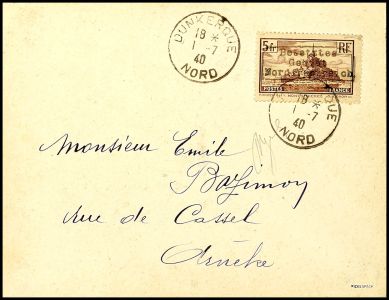 DUNKERQUE
18 *
1 -7
40
NORD
5f RF
Besetztes
Gebiet
Nordfrankreich
POSTES FRANCE
18 *
1 -7
40
NORD
Monsieur Emile
rue de Cassel
Arnèke